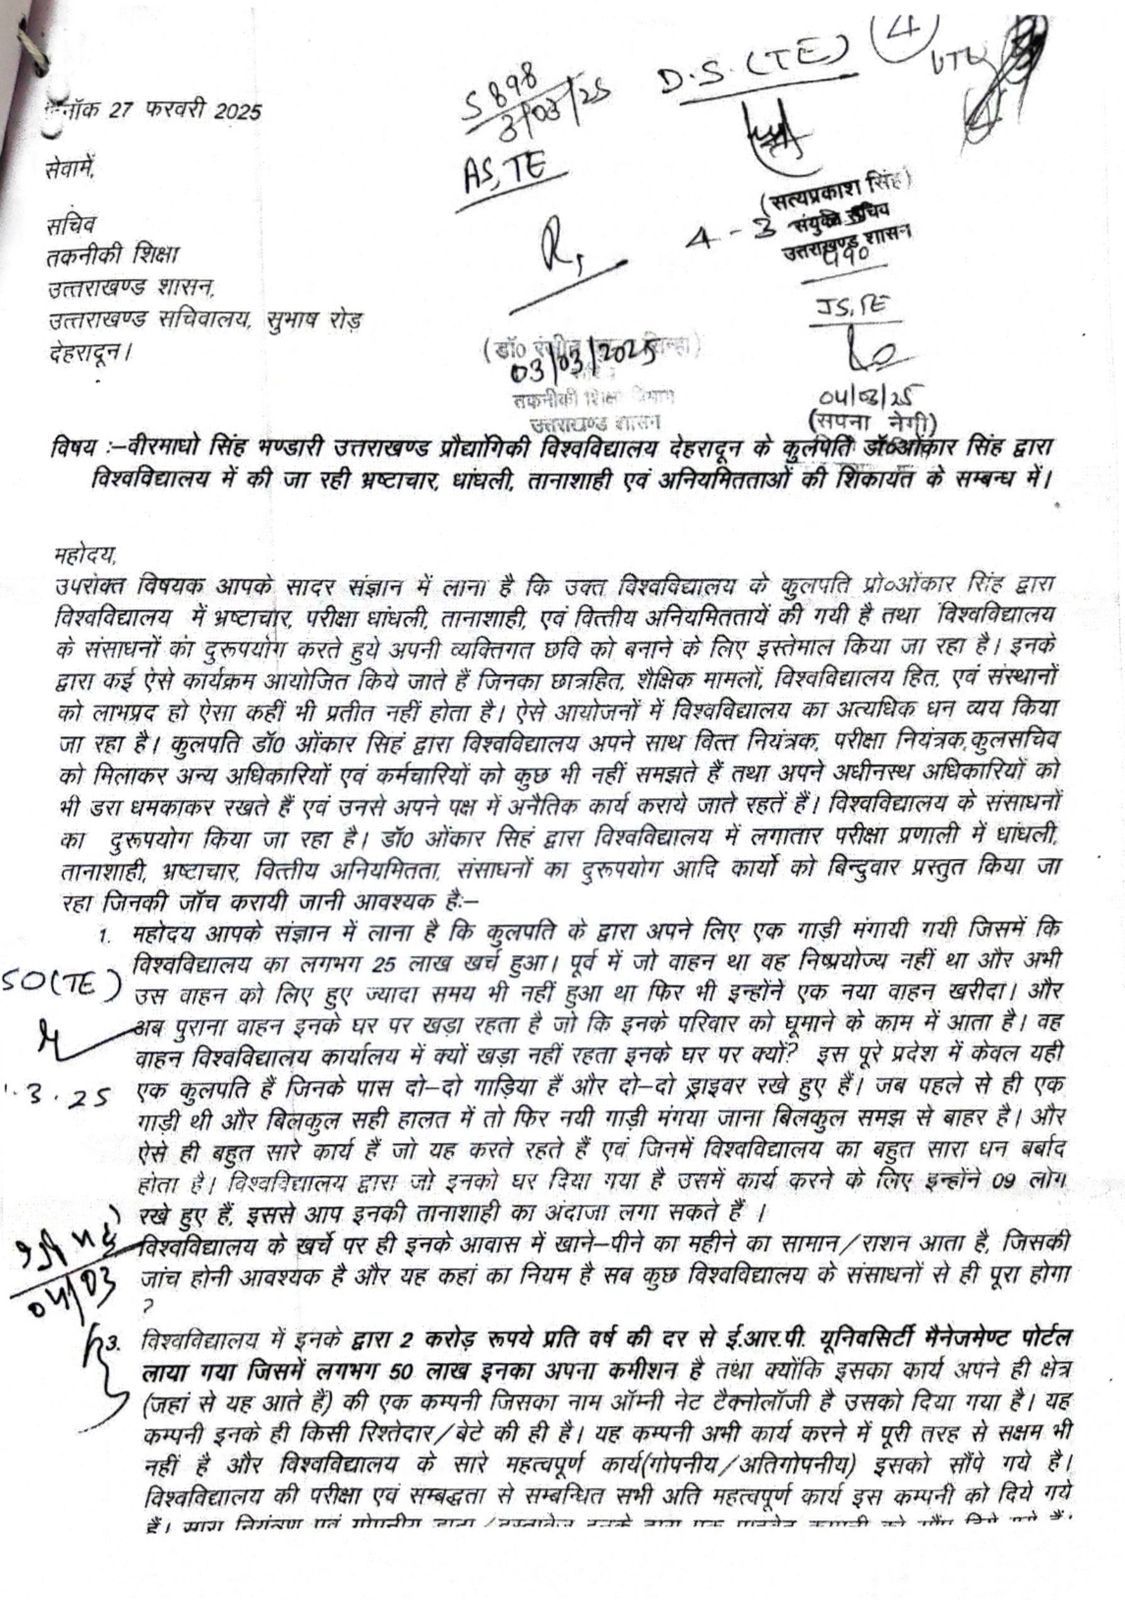 4
D.S.(TE)
5898
3/03/25
AS, TE
दिनॉक 27 फरवरी 2025
सेवामें,
(सत्यप्रकाश सिंह)
संयुक्त सचिव
4-3
उत्तराखण्ड शासन
सचिव
तकनीकी शिक्षा
उत्तराखण्ड शासन,
उत्तराखण्ड सचिवालय, सुभाष रोड़
देहरादून।
JS, TE
03/03/2025
तकनीकी शिक्षा विभाग
उत्तराखण्ड शासन
04/03/25
(सपना नेगी)
विषय :–वीरमाधो सिंह भण्डारी उत्तराखण्ड प्रौद्यागिकी विश्वविद्यालय देहरादून के कुलपति डॉ०ओंकार सिंह द्वारा
विश्वविद्यालय में की जा रही भ्रष्टाचार, धांधली, तानाशाही एवं अनियमितताओं की शिकायत के सम्बन्ध में।
महोदय,
उपरोक्त विषयक आपके सादर संज्ञान में लाना है कि उक्त विश्वविद्यालय के कुलपति प्रो०ओंकार सिंह द्वारा
विश्वविद्यालय में भ्रष्टाचार, परीक्षा धांधली, तानाशाही, एवं वित्तीय अनियमिततायें की गयी है तथा विश्वविद्यालय
के संसाधनों का दुरूपयोग करते हुये अपनी व्यक्तिगत छवि को बनाने के लिए इस्तेमाल किया जा रहा है। इनके
द्वारा कई ऐसे कार्यक्रम आयोजित किये जाते हैं जिनका छात्रहित, शैक्षिक मामलों, विश्वविद्यालय हित, एवं संस्थानों
को लाभप्रद हो ऐसा कहीं भी प्रतीत नहीं होता है। ऐसे आयोजनों में विश्वविद्यालय का अत्यधिक धन व्यय किया
जा रहा है। कुलपति डॉ0 ओंकार सिहं द्वारा विश्वविद्यालय अपने साथ वित्त नियंत्रक, परीक्षा नियंत्रक,कुलसचिव
को मिलाकर अन्य अधिकारियों एवं कर्मचारियों को कुछ भी नहीं समझते हैं तथा अपने अधीनस्थ अधिकारियों को
भी डरा धमकाकर रखते हैं एवं उनसे अपने पक्ष में अनैतिक कार्य कराये जाते रहतें हैं। विश्वविद्यालय के संसाधनों
का दुरूपयोग किया जा रहा है। डॉ0 ओंकार सिहं द्वारा विश्वविद्यालय में लगातार परीक्षा प्रणाली में धांधली,
तानाशाही, भ्रष्टाचार, वित्तीय अनियमितता, संसाधनों का दुरूपयोग आदि कार्यो को बिन्दुवार प्रस्तुत किया जा
रहा जिनकी जॉच करायी जानी आवश्यक है:–
1. महोदय आपके संज्ञान में लाना है कि कुलपति के द्वारा अपने लिए एक गाड़ी मंगायी गयी जिसमें कि
विश्वविद्यालय का लगभग 25 लाख खर्च हुआ। पूर्व में जो वाहन था वह निष्प्रयोज्य नहीं था और अभी
SO(TE)
उस वाहन को लिए हुए ज्यादा समय भी नहीं हुआ था फिर भी इन्होंने एक नया वाहन खरीदा। और
अब पुराना वाहन इनके घर पर खड़ा रहता है जो कि इनके परिवार को घूमाने के काम में आता है। वह
वाहन विश्वविद्यालय कार्यालय में क्यों खड़ा नहीं रहता इनके घर पर क्यों? इस पूरे प्रदेश में केवल यही
.3.25
एक कुलपति हैं जिनके पास दो–दो गाड़िया हैं और दो–दो ड्राइवर रखे हुए हैं। जब पहले से ही एक
गाड़ी थी और बिलकुल सही हालत में तो फिर नयी गाड़ी मंगया जाना बिलकुल समझ से बाहर है। और
ऐसे ही बहुत सारे कार्य हैं जो यह करते रहते हैं एवं जिनमें विश्वविद्यालय का बहुत सारा धन बर्बाद
होता है। विश्वविद्यालय द्वारा जो इनको घर दिया गया है उसमें कार्य करने के लिए इन्होंने 09 लोग
रखे हुए हैं, इससे आप इनकी तानाशाही का अंदाजा लगा सकते हैं ।
विश्वविद्यालय के खर्चे पर ही इनके आवास में खाने–पीने का महीने का सामान/राशन आता है, जिसकी
04/03
जांच होनी आवश्यक है और यह कहां का नियम है सब कुछ विश्वविद्यालय के संसाधनों से ही पूरा होगा
?
3. विश्वविद्यालय में इनके द्वारा 2 करोड़ रूपये प्रति वर्ष की दर से ई.आर.पी. यूनिवसिर्टी मैनेजमेण्ट पोर्टल
लाया गया जिसमें लगभग 50 लाख इनका अपना कमीशन है तथा क्योंकि इसका कार्य अपने ही क्षेत्र
(जहां से यह आते हैं) की एक कम्पनी जिसका नाम ऑम्नी नेट टैक्नोलॉजी है उसको दिया गया है। यह
कम्पनी इनके ही किसी रिश्तेदार/बेटे की ही है। यह कम्पनी अभी कार्य करने में पूरी तरह से सक्षम भी
नहीं है और विश्वविद्यालय के सारे महत्वपूर्ण कार्य(गोपनीय/अतिगोपनीय) इसको सौंपे गये है।
विश्वविद्यालय की परीक्षा एवं सम्बद्धता से सम्बन्धित सभी अति महत्वपूर्ण कार्य इस कम्पनी को दिये गये